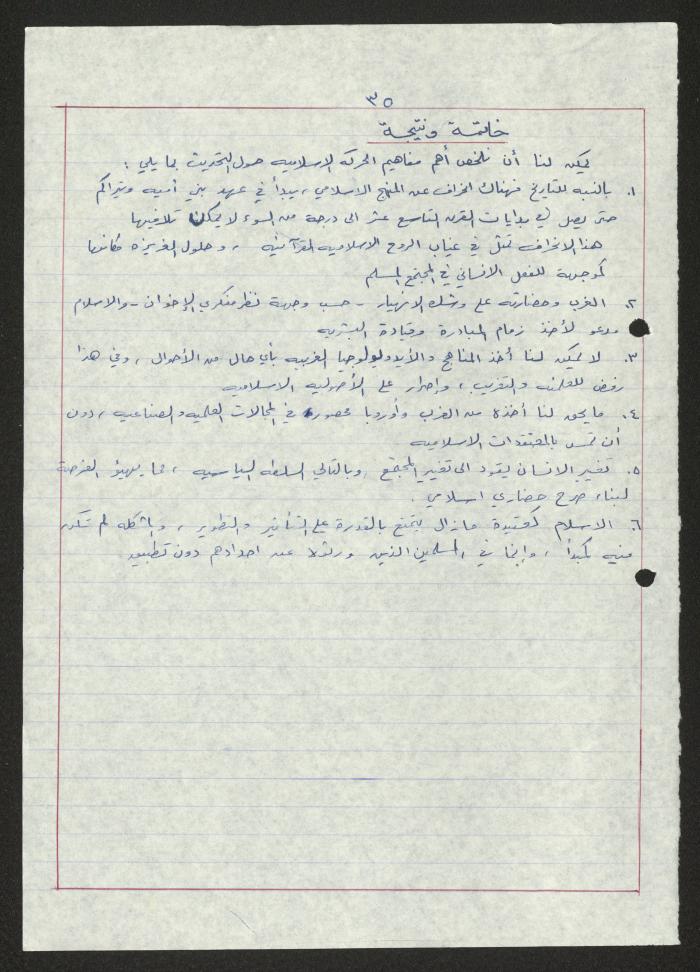 ٣٥
خاتمة ونتيجة
يمكن لنا أن نلخص أهم مفاهيم الحركة الإسلامية حول التحديث بما يلي :
١. بالنسبة للتاريخ فهناك انحراف عن المنهج الاسلامي ، يبدأ في عهد بني أمية ويتراكم
حتى يصل في بدايات القرن التاسع عشر الى درجة من السوء لا يمكن تلافيها
هذا الانحراف تمثل في غياب الروح الاسلامية القرآنية ، وحلول الغريزة مكانها
كموجهة للفعل الانساني في المجتمع المسلم
٢. الغرب وحضارته على وشك الانهيار - حسب وجهة نظر مفكري الإخوان - والاسلام
مدعو لأخذ زمام المبادرة وقيادة البشرية
٣. لا يمكن لنا أخذ المناهج والأيديولوجيا الغربية بأي حال من الأحوال ، وفي هذا
رفض للعلمنة والتغريب ، واصرار على الأصولية الاسلامية
٤. ما يحق لنا أخذه من الغرب وأوروبا محصور في المجالات العلمية والصناعية ، دون
أن تمس بالمعتقدات الاسلامية
٥. تغيير الانسان يقود الى تغيير المجتمع وبالتالي السلطة السياسية ، مما يهيؤ الفرصة
لبناء صرح حضاري اسلامي .
٦. الاسلام كعقيدة مازال يتمتع بالقدرة على التأثير والتطوير ، والمشكلة لم تكن
فيه كمبدأ ، وإنما في المسلمين الذين ورثوه عن اجدادهم دون تطبيق